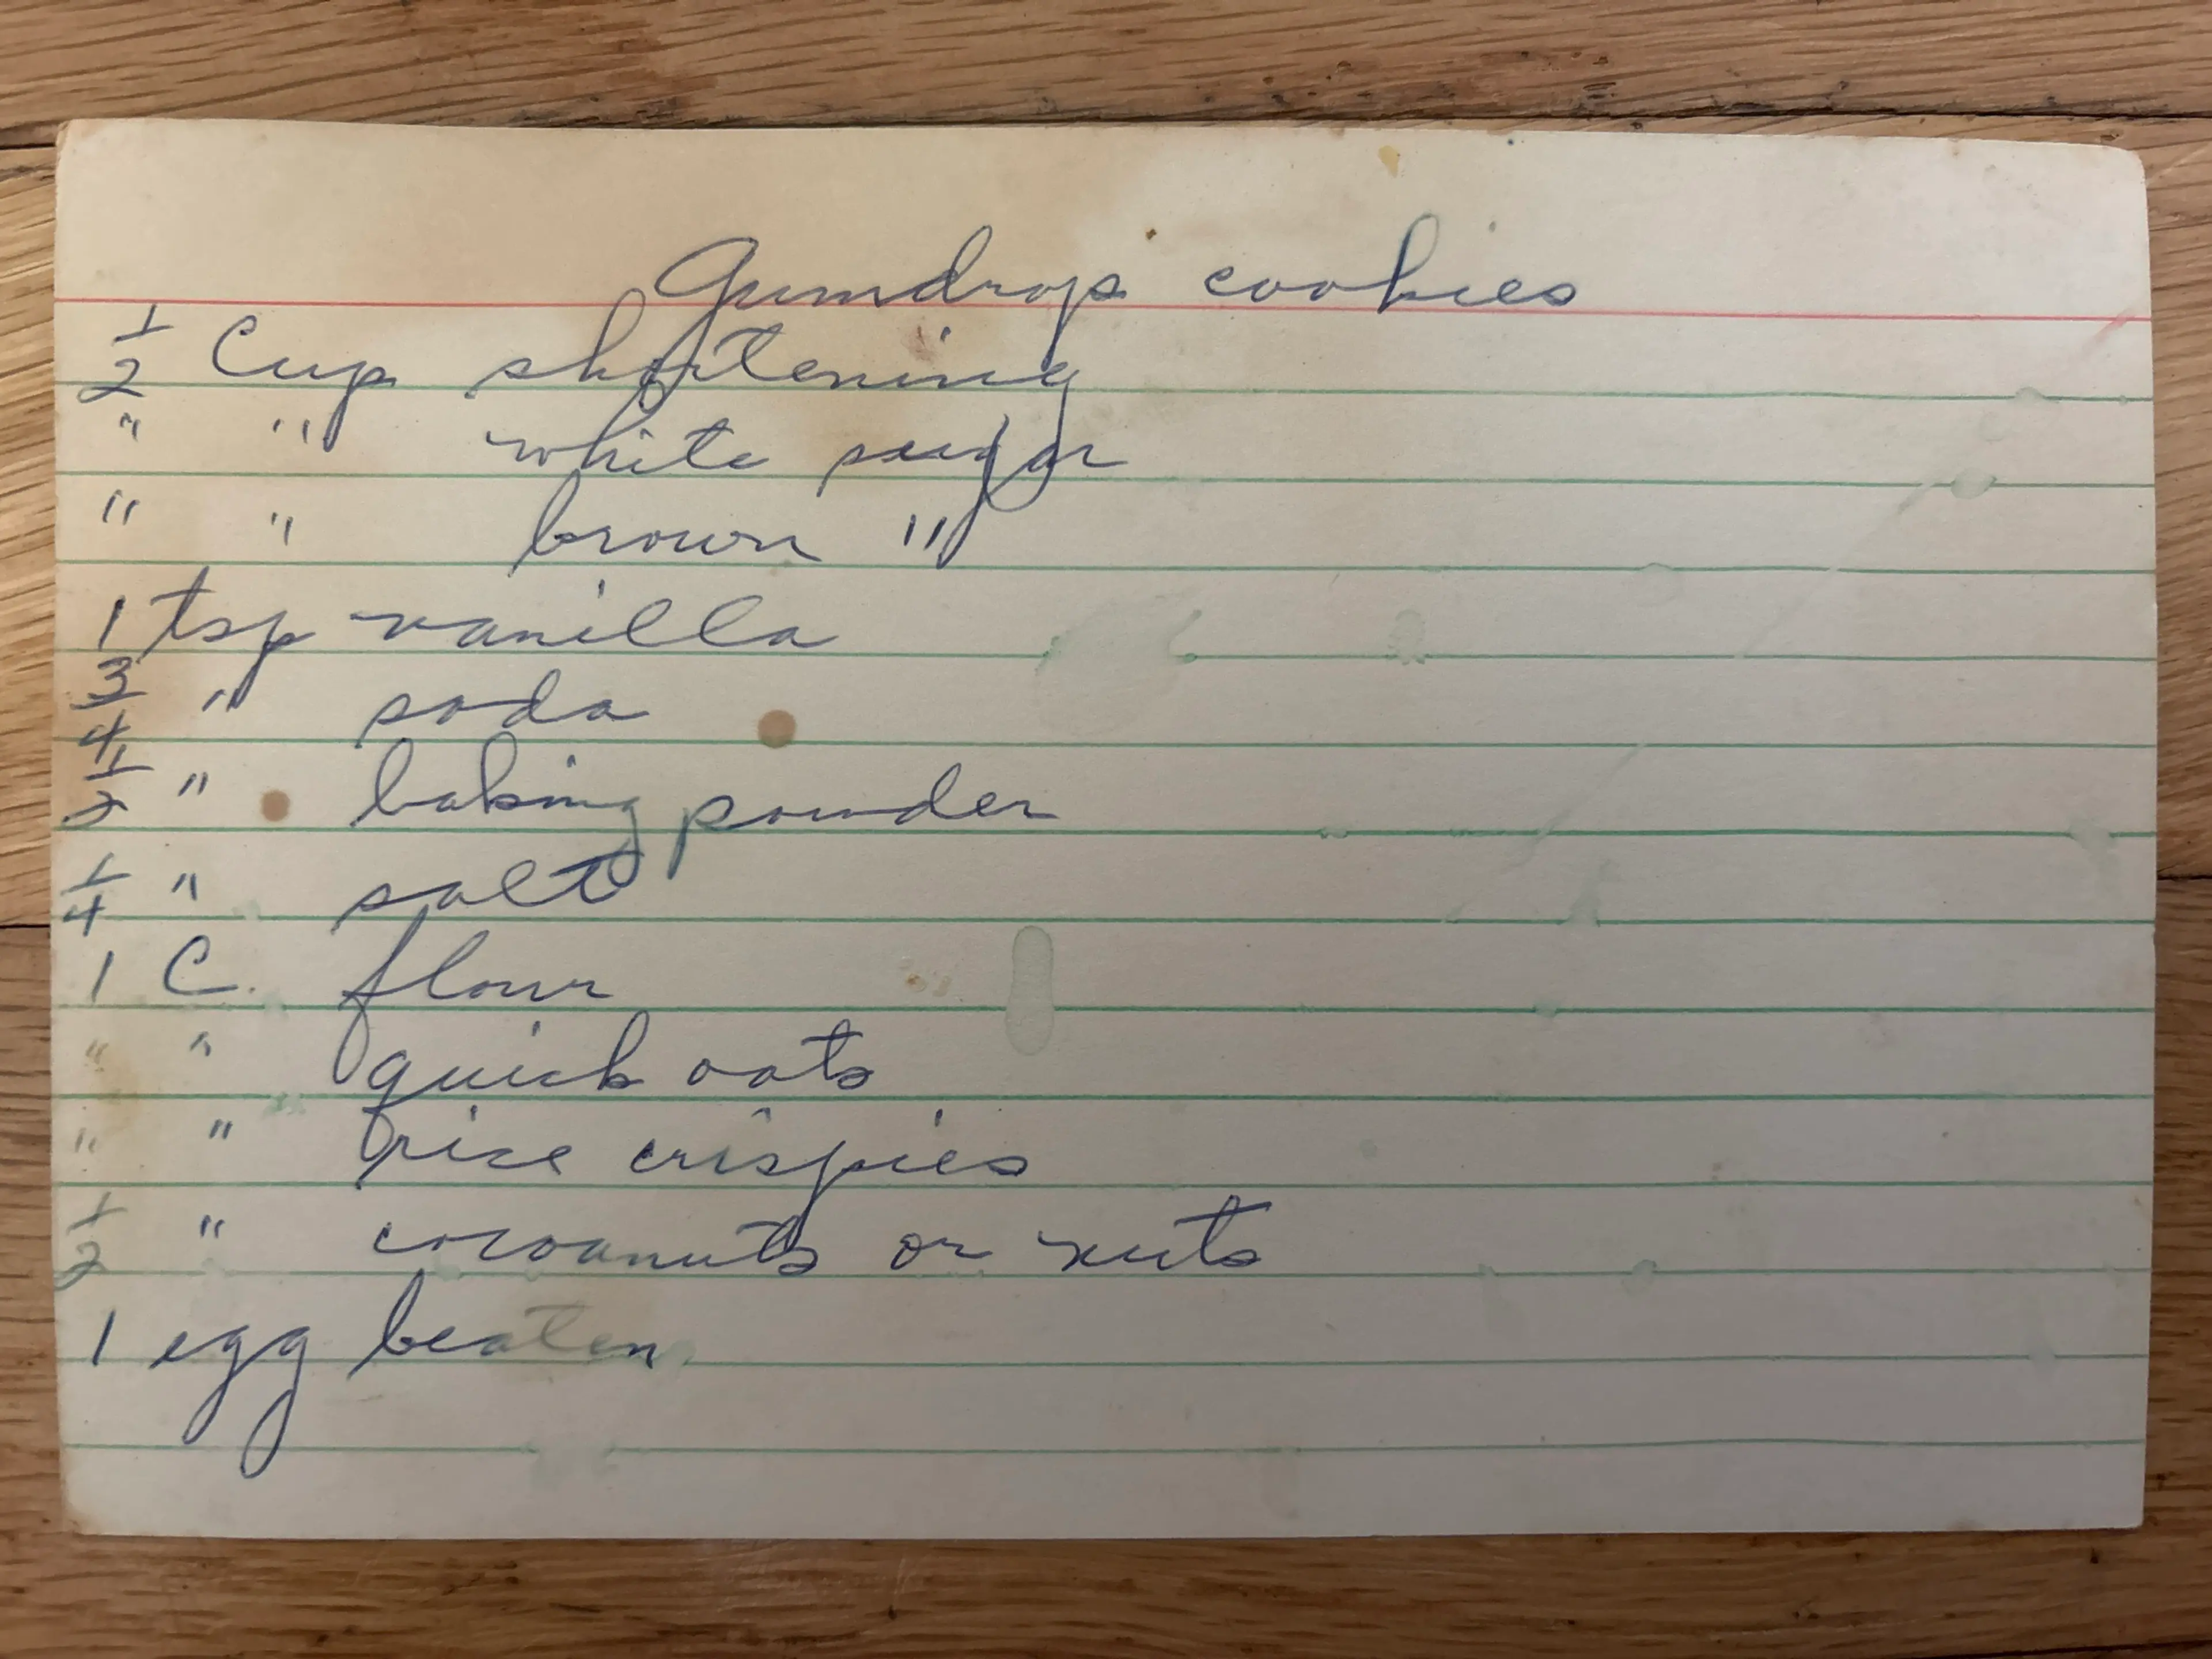 Gumdrops cookies
1/2 Cup shortening
" " white sugar
" " brown "
1 tsp vanilla
3/4 " soda
1/2 " baking powder
1/4 " salt
1 C. flour
" " quick oats
" " rice crispies
1/2 " cocoanuts or nuts
1 egg beaten